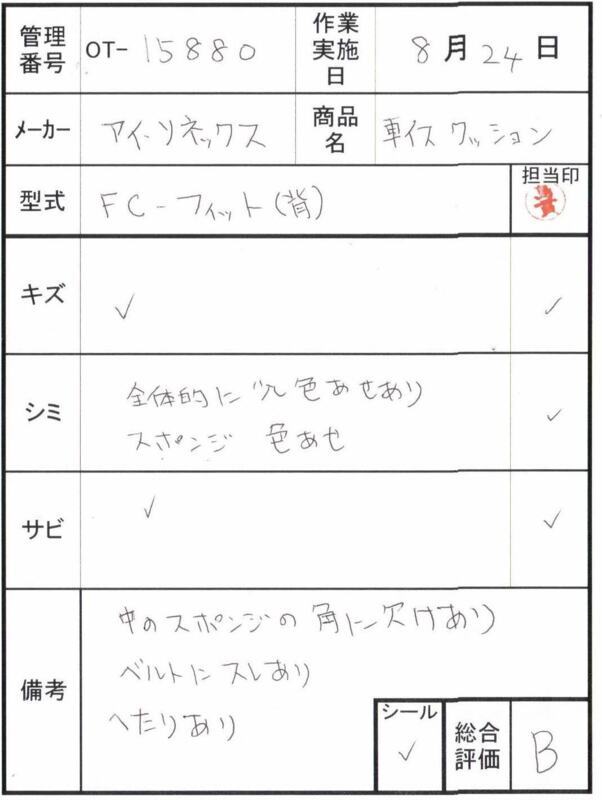 管理番号 OT- 15880 作業実施日 8月24日
メーカー アイ・ソネックス 商品名 車イス クッション
型式 FC-フィット(背) 担当印
キズ ✓ ✓
シミ 全体的に少色あせあり ✓
スポンジ 色あせ
サビ ✓ ✓
備考 中のスポンジの角に欠けあり
ベルトにスレあり
へたりあり
シール ✓ 総合評価 B